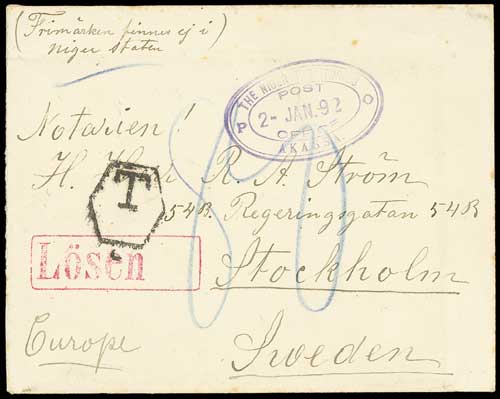 (Frimärken finnes ej i
Niger staten
THE NIGER TERRITORIES
POST
P 2- JAN. 92 O
OFFICE
AKASSA
Notarien!
H. R. A. Ström
T
54B. Regeringsgatan 54B
Lösen
Stockholm
Europe
Sweden